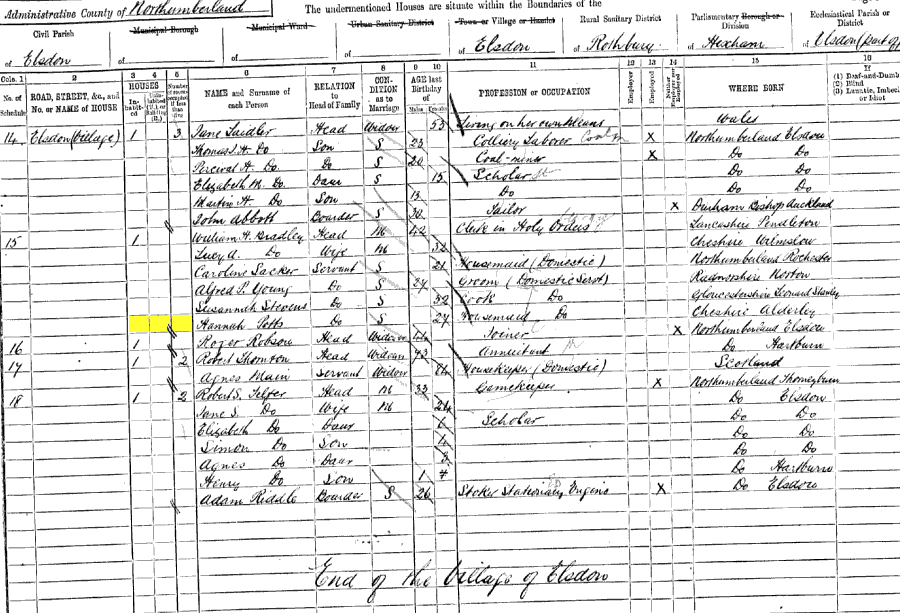 Administrative County of Northumberland
The undermentioned Houses are situate within the Boundaries of the
Civil Parish of Elsdon
Municipal Borough of
Municipal Ward of
Urban Sanitary District of
Town or Village or Hamlet of Elsdon
Rural Sanitary District of Rothbury
Parliamentary Borough or Division of Hexham
Ecclesiastical Parish or District of Elsdon (part of)
Cols. 1 2 3 4 5 6 7 8 9 10 11 12 13 14 15 16
No. of Schedule ROAD, STREET, &c., and No. or NAME of HOUSE HOUSES NAME and Surname of each Person RELATION to Head of Family CONDITION as to Marriage AGE last Birthday of PROFESSION or OCCUPATION Employer Employed WHERE BORN If (1) Deaf-and-Dumb (2) Blind (3) Lunatic, Imbecile or Idiot
14 Elsdon (Village) 1 3 Jane Laidler Head Widow 53 Living on her own Means Wales
Thomas S. H. Do Son S 23 Colliery Laborer X Northumberland Elsdon
Percival H. Do. Do S 20 Coal-miner X Do Do
Elizabeth M. Do. Daur S 15 Scholar Do Do
Martin H. Do Son 13 Do Do Do
John Abbott Boarder S 30 Tailor X Durham Bishop Auckland
15 1 William H. Bradley Head M 42 Clerk in Holy Orders Lancashire Pendleton
Lucy A. Do Wife M 32 Cheshire Wilmslow
Caroline Sacker Servant S 21 Housemaid (Domestic) Northumberland Rochester
Alfred P. Young Do S 27 Groom (Domestic Servt) Radnorshire Norton
Susannah Stevens Do S 32 Cook Do Gloucestershire Leonard Stanley
Hannah Potts Do S 27 Housemaid Do Cheshire Alderley
16 1 Roger Robson Head Widower 44 Joiner X Northumberland Elsdon
17 1 2 Robert Thornton Head Widower 73 Annuitant Do Hartburn
Agnes Main Servant Widow 64 Housekeeper (Domestic) Scotland
18 1 2 Robert S. Telfer Head M 33 Gamekeeper X Northumberland Thorneyburn
Jane S. Do Wife M 24 Do Elsdon
Elizabeth Do Daur 6 Scholar Do Do
Simon Do Son 4 Do Do
Agnes Do Daur 3 Do Do
Henry Do Son 1 Do Hartburn
Adam Riddle Boarder S 26 Stoker Stationary Engine X Do Elsdon
End of the Village of Elsdon